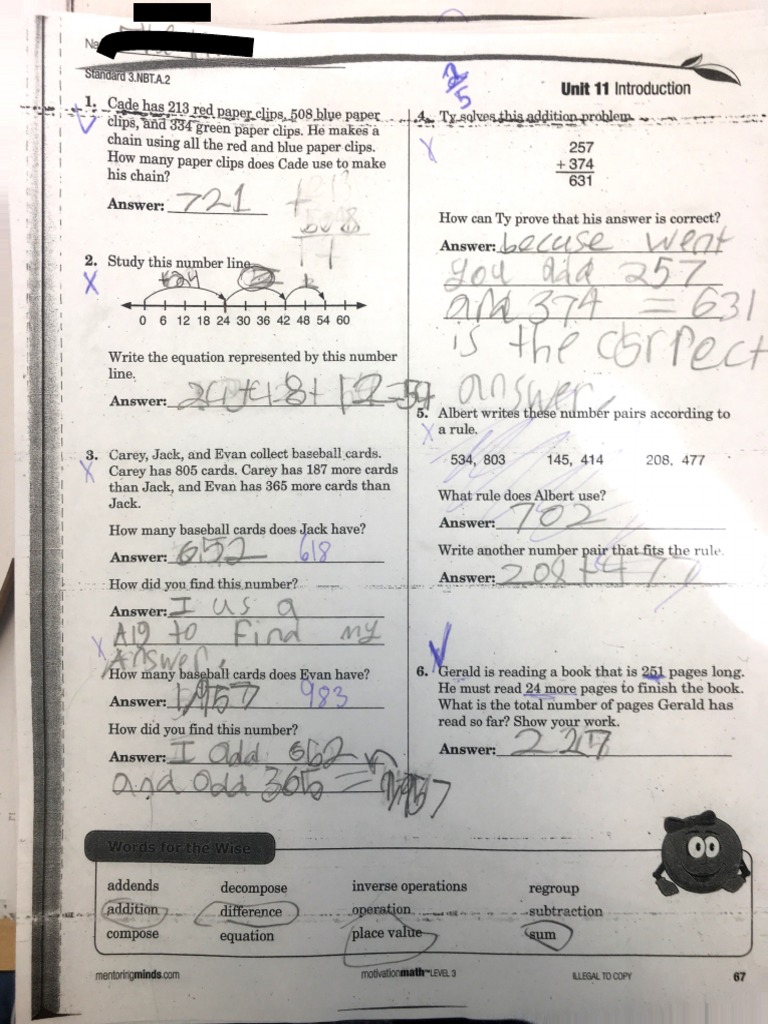 Na
Standard 3.NBT.A.2
2/5
Unit 11 Introduction
1. Cade has 213 red paper clips, 508 blue paper
clips, and 334 green paper clips. He makes a
chain using all the red and blue paper clips.
How many paper clips does Cade use to make
his chain?
Answer: 721
2. Study this number line.
0 6 12 18 24 30 36 42 48 54 60
Write the equation represented by this number
line.
Answer: 24+48+12=54
3. Carey, Jack, and Evan collect baseball cards.
Carey has 805 cards. Carey has 187 more cards
than Jack, and Evan has 365 more cards than
Jack.
How many baseball cards does Jack have?
Answer: 652 618
How did you find this number?
Answer: I us a
Alg to find my
Answer.
How many baseball cards does Evan have?
Answer: 1,957 983
How did you find this number?
Answer: I add 652
and add 365 = 1957
4. Ty solves this addition problem.
257
+ 374
631
How can Ty prove that his answer is correct?
Answer: becuse went
you add 257
and 374 = 631
is the correct
answer.
5. Albert writes these number pairs according to
a rule.
534, 803 145, 414 208, 477
What rule does Albert use?
Answer: 702
Write another number pair that fits the rule.
Answer: 208+477
6. Gerald is reading a book that is 251 pages long.
He must read 24 more pages to finish the book.
What is the total number of pages Gerald has
read so far? Show your work.
Answer: 227
Words for the Wise
addends decompose inverse operations regroup
addition difference operation subtraction
compose equation place value sum
mentoringminds.com motivationmath™ LEVEL 3 ILLEGAL TO COPY 67